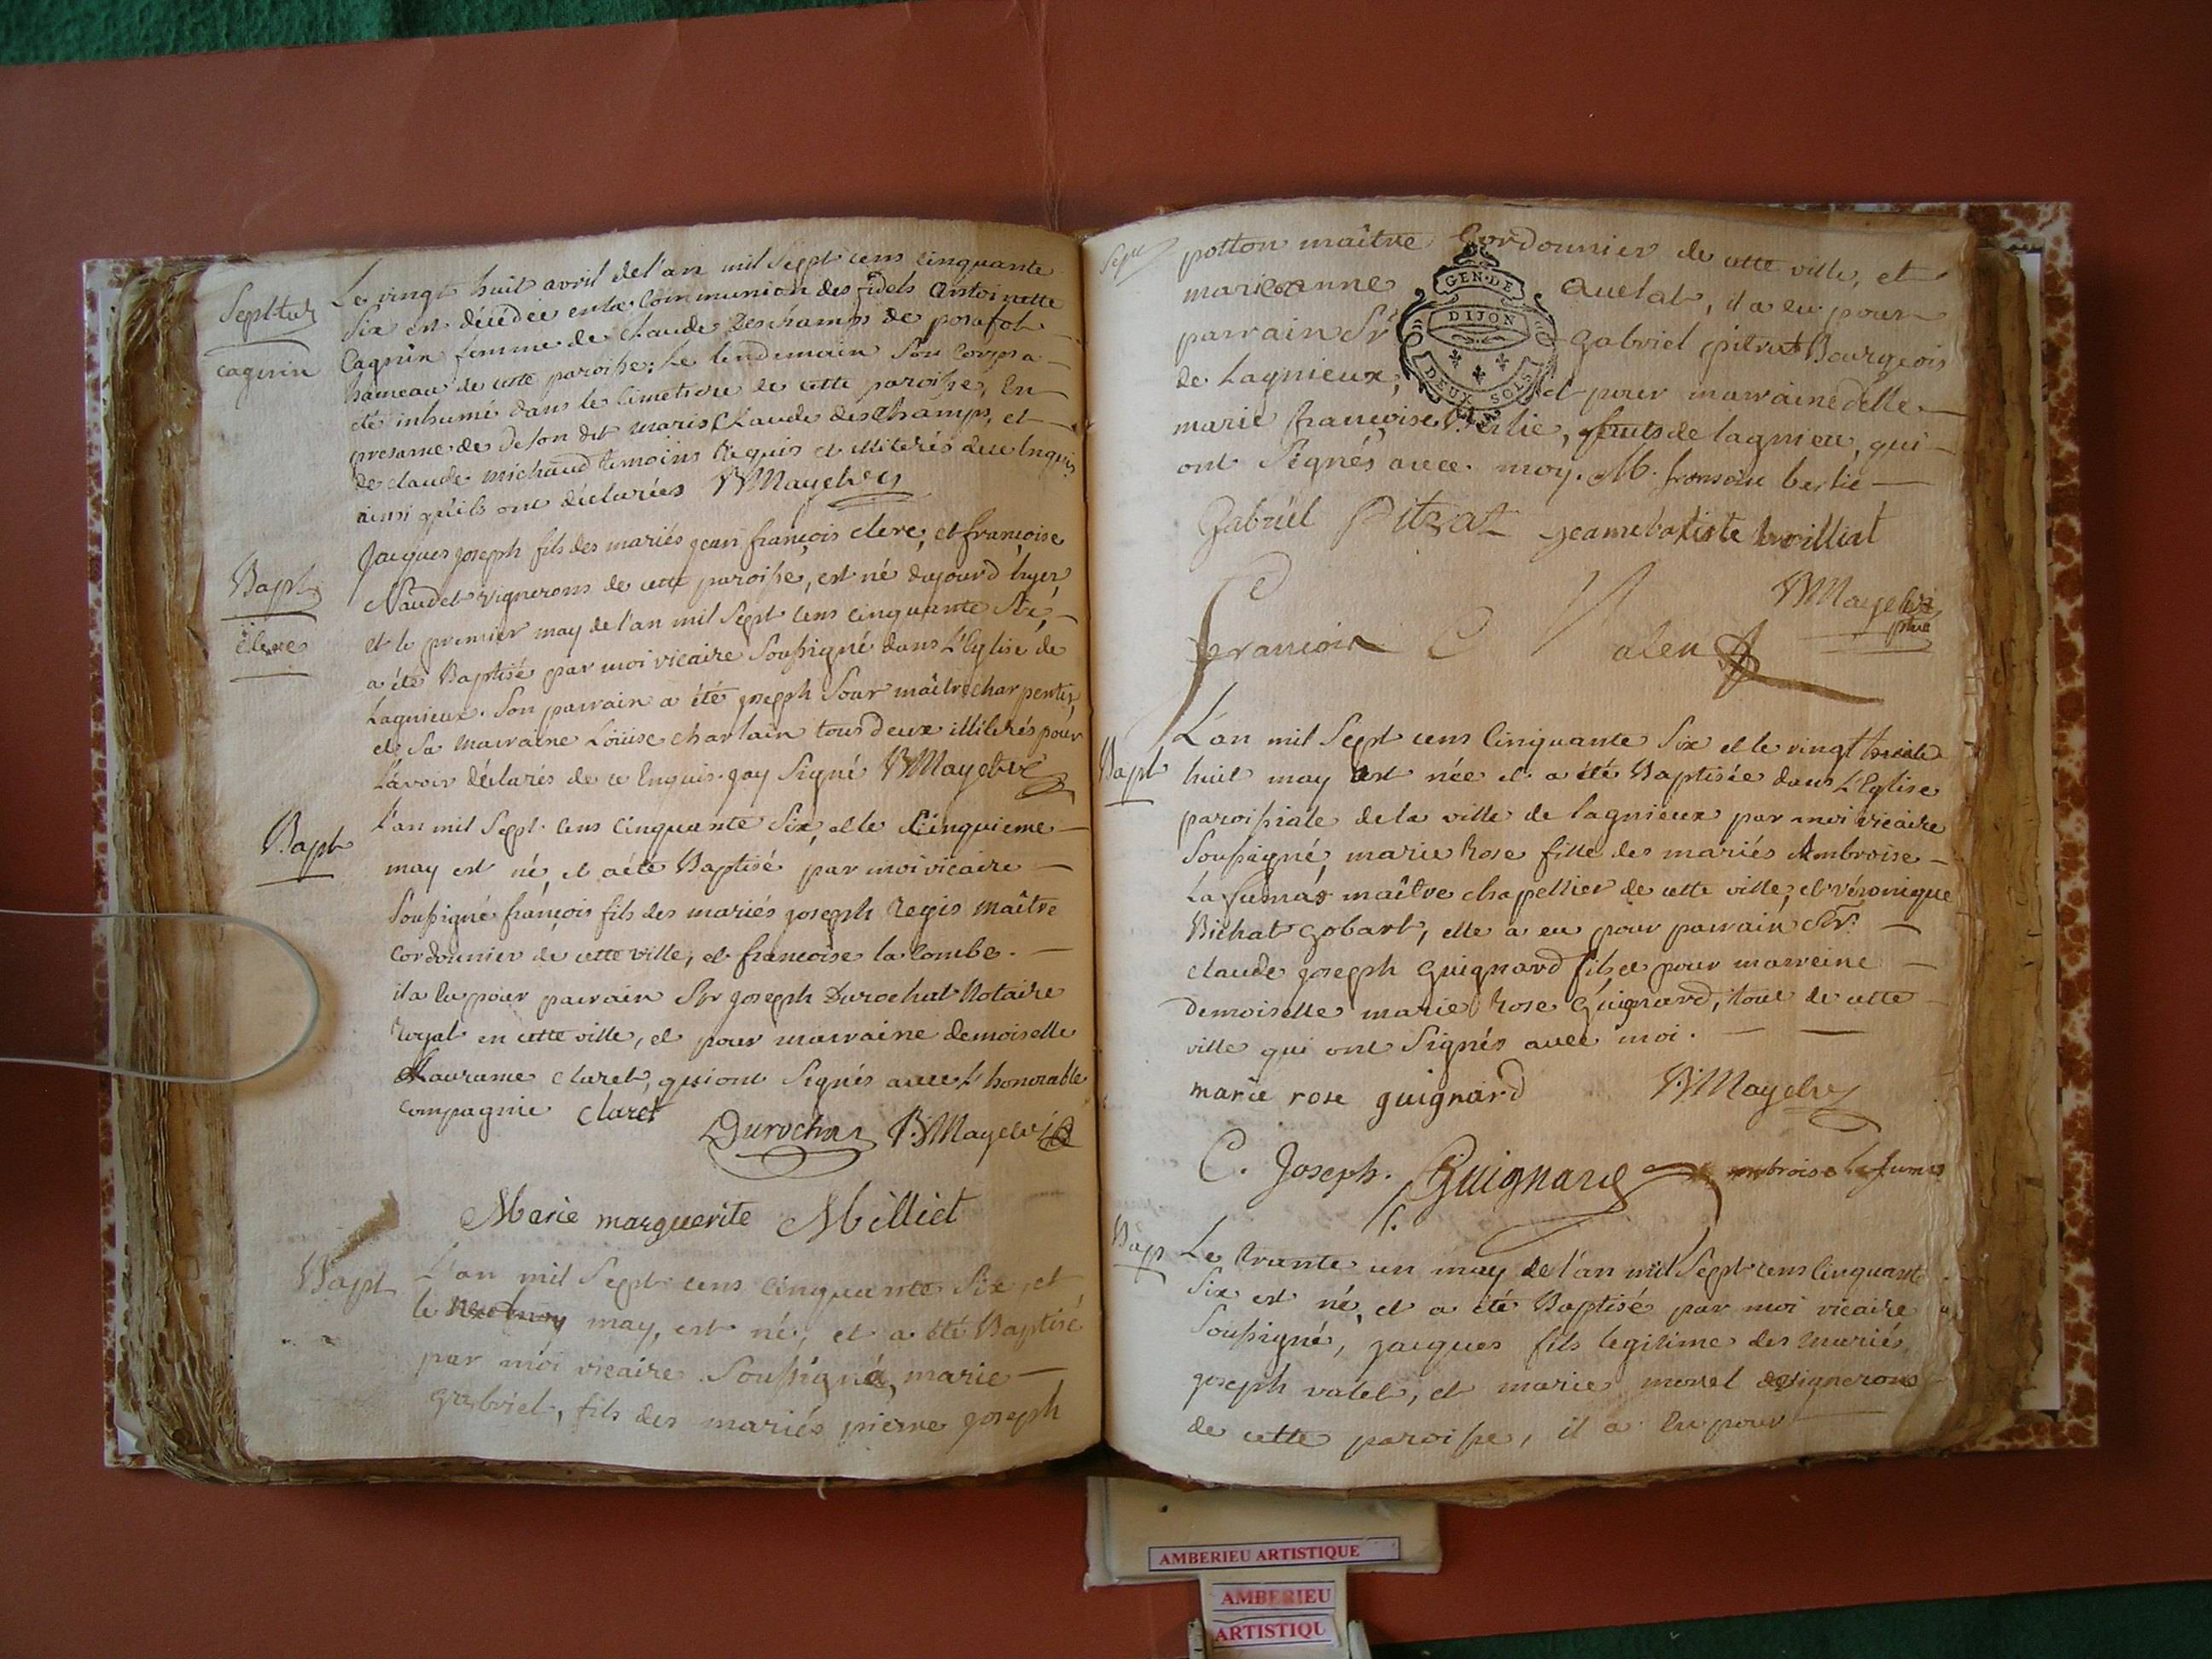 Sept-tur
cagnin
Le vingt huit avril de l'an mil sept cens cinquante
six est décédée en la Communion des fidels Antoinette
Cagnin femme de Claude Deschamps de posafol
hameau de cette paroisse; le lendemain son corps a
été inhumé dans le Cimetiere de cette paroisse, en
presance de de son dit maris Claude deschamps, et
de claude michaud temoins requis et illiterés de ce enquis
ainsi qu'ils ont déclarées
Bapt
clere
Jacques joseph fils des mariés jean françois clerc, et françoise
Naudet vignerons de cette paroisse, est né dujourd'hyer,
et le premier may de l'an mil sept cens cinquante six,
a été Baptisé par moi vicaire soussigné dans L'Eglise de
Lagnieux. Son parrain a été joseph sour maître charpentier,
et sa marraine Loüise charlain tous deux illiterés pour
l'avoir déclarés de ce enquis. jay signé
Bapt
L'an mil sept cens cinquante six, et le cinquieme
may est né, et a été Baptisé par moi vicaire
soussigné françois fils des mariés joseph Regis maître
cordonnier de cette ville, et françoise la combe.
il a eu pour parrain Sr joseph Durochat Notaire
royal en cette ville, et pour marraine demoiselle
claret, qui ont signés avec l'honorable
compagnie claret
Durochat
Marie marguerite Milliet
Bapt
L'an mil sept cens cinquante six, et
le may, est né, et a été Baptisé
par moi vicaire soussigné, marie
gabriel, fils des mariés pierre joseph
potton maître Cordonnier de cette ville, et
marieanne Quelat, il a eu pour
parrain Sr Gabriel pitrat Bourgeois
de Lagnieux, et pour marraine delle
marie françoise Berlie, de lagnieu, qui
ont signés avec moy. M. fransoise berlie
GEN. DE
DIJON
DEUX SOLS
Gabriel Pitrat jeanne batiste
francois
Bapt
L'an mil sept cens cinquante six et le vingt
huit may est née et a été Baptisée dans L'Eglise
paroissiale de la ville de lagnieux par moi vicaire
soussigné, marie Rose fille des mariés Ambroise
La fumas maître chapellier de cette ville, et véronique
Bichat gobart, elle a eu pour parrain Sr.
claude joseph Guignard fils et pour marreine
demoiselle marie Rose Guignard, tout de cette
ville qui ont signés avec moi.
marie rose guignard
C. Joseph. Guignard
Bap
Le trante un may de l'an mil sept cens cinquante
six est né, et a été Baptisé par moi vicaire
soussigné, jacques fils legitime des mariés,
joseph valet, et marie morel vignerons
de cette paroisse, il a eu pour
AMBERIEU ARTISTIQUE
AMBERIEU
ARTISTIQU